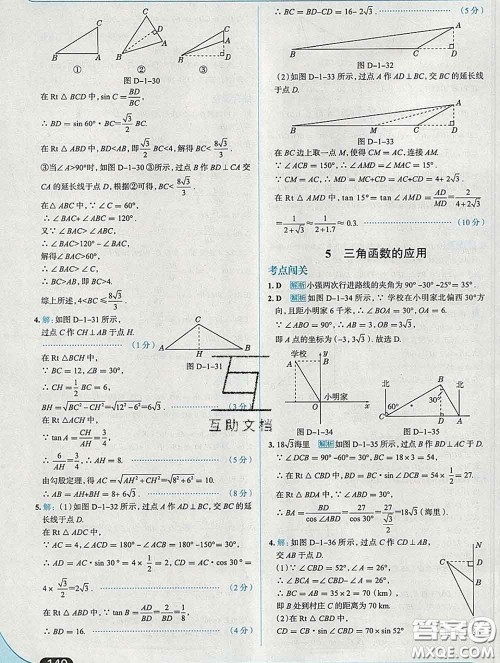 C C C
A
B A B D A B D
① ② ③
图 D-1-30
在 Rt △ BCD 中,sin C=BD/BC,
∴ BD = sin 60°·BC = √3/2 BC.
在 Rt △ ABD 中,BD<AB,即√3/2 BC<4,解得 BC<8√3/3.
③当∠A>90°时,如图 D-1-30 ③所示,过点 B 作 BD⊥CA 交
CA 的延长线于点 D,根据②可得,BC<8√3/3.
∵ ∠C=60°,
∴ ∠BAC+∠ABC=120°.
又∵∠BAC>∠ABC,
∴ ∠BAC+∠BAC>120°.
解得∠BAC>60°.
又∵∠BAC>∠ABC,
即∠BAC>∠C,
∴ BC>AB=4.
综上所述,4<BC<8√3/3.
4. 解:如图 D-1-31 所示,
过点 C 作 CH⊥AB 于点 H.
(1 分)
C
A H B
图 D-1-31
在 Rt △BCH 中,
∵ BC=12,∠B=30°,
∴ CH=1/2 BC=6,
BH=√BC²-CH²=√12²-6²=6√3.
(3 分)
在 Rt △ACH 中,
∵ tan A=CH/AH=3/4,
∴ 6/AH=3/4,∴ AH=8.
(5 分)
由勾股定理,得 AC=√AH²+CH²=√8²+6²=10.
∴ AB=AH+BH=8+6√3.
(8 分)
5. 解:(1)如图 D-1-32 所示,过点 A 作 AD⊥BC,交 BC 的延
长线于点 D.
在 Rt △ ADC 中,
∵ AC=4,∠ACD=180°-∠ACB=180°-150°=30°,
∴ AD=AC·sin 30°=4×1/2=2,CD=AC·cos 30°=
4×√3/2=2√3.
(2 分)
在 Rt △ABD 中,∵ tan B=AD/BD=2/BD=1/8,
∴ BD=16.
(4 分)
140
∴ BC=BD-CD=16-2√3.
(5 分)
A
B C D
图 D-1-32
(2)如图 D-1-33 所示,过点 A 作 AD⊥BC,交 BC 的延长线
于点 D.
A
B M C D
图 D-1-33
在 BC 边上取一点 M,使得 CM=AC,连接 AM.
∵ ∠ACB=150°,∴ ∠AMD=∠MAC=15°.
∵ CM=AC,∴ MD=MC+CD=AC+CD=4+2√3.
在 Rt △ AMD 中,tan 15°=tan∠AMD=AD/MD=2/4+2√3
=1/2+√3≈1/2+1.7≈0.3.
(10 分)
5 三角函数的应用
考点闯关
1. D 解析 小强两次行进路线的夹角为 90°-30°-25°=35°.
2. D 解析 如图 D-1-34 所示,∵ 学校在小明家北偏西 30°方
向,且距小明家 6 千米,∴ ∠AOB=60°,OA=6.
∵ ∠ABO=90°,∴ AB=3√3,OB=3.
即 A 点的坐标为(-3,3√3).故选 D.
学校
小明家
O
图 D-1-34
北 北
60° 30°
B A
C D
图 D-1-35
3. 18√3 海里 解析 如图 D-1-35 所示,过点 B 作 BD⊥AC 于 D.
在 Rt △ BCD 中,∵ ∠BCD=90°-60°=30°,BC=18×3=54,
∴ BD=BC·sin∠BCD=54×1/2=27.
在 Rt △ BDA 中,∵ ∠ABD=30°,
∴ BA=BD/cos∠ABD=27/cos 30°=18√3(海里).
4. 解:如图 D-1-36 所示,过点 C 作 CD⊥AB,
交 AB 于点 D.
(1)∵ ∠CBD=52°,∠A=26°,
∴ ∠BCA=26°,
∴ ∠BCA=∠A,∴ AB=BC.
∵ AB=35×2=70(km),
即 B 处到村庄 C 的距离为 70 km.
(2)在 Rt △ CBD 中,
∵ CD=CB·sin∠CBD=70×sin 52°
互助文档
答案圈
MXQE.COM